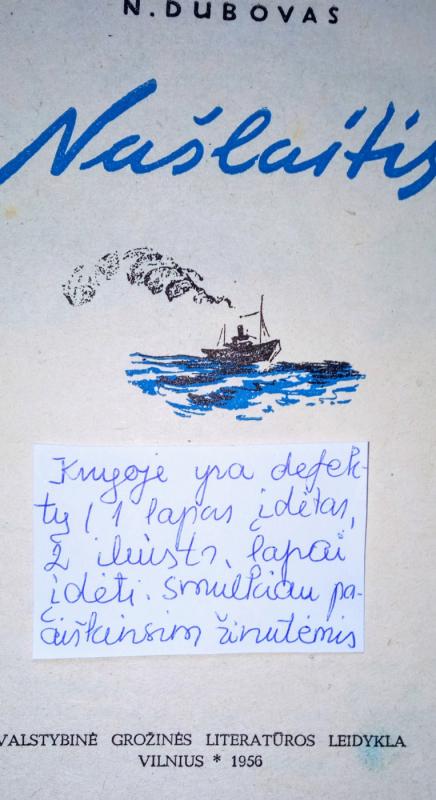 N. DUBOVAS
Našlaitis
Knygoje yra defek-
tų / 1 lapas įdėtas,
2 iliustr. lapai
įdėti. Smulkiau pa-
aiškinsim žinutėmis
VALSTYBINĖ GROŽINĖS LITERATŪROS LEIDYKLA
VILNIUS * 1956